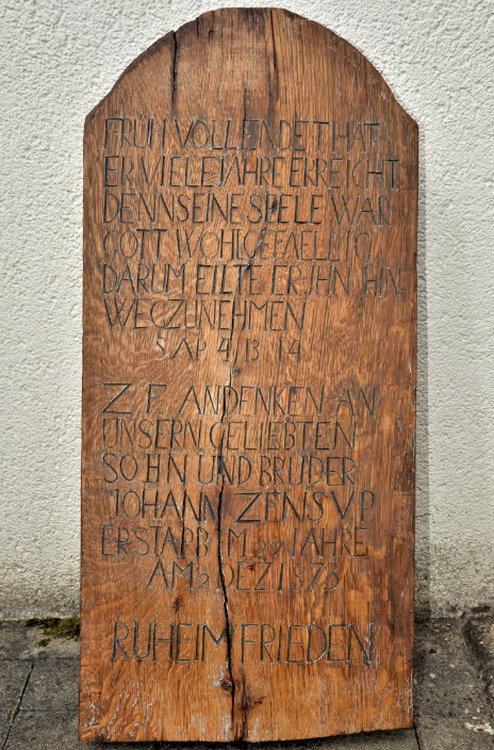 FRÜH VOLLENDET HAT
ER VIELE JAHRE ERREICHT
DENN SEINE SPELE WAR
GOTT WOHLGEFAELLIG
DARUM EILTE ER JHN HIN
WEGZUNEHMEN
SAP 4, 13 14
Z F ANDENKEN AN
UNSERN GELIEBTEN
SOHN UND BRUDER
JOHANN ZENS V P
ER STARB IM JAHRE
AM DEZ 1873
RUHE IM FRIEDEN